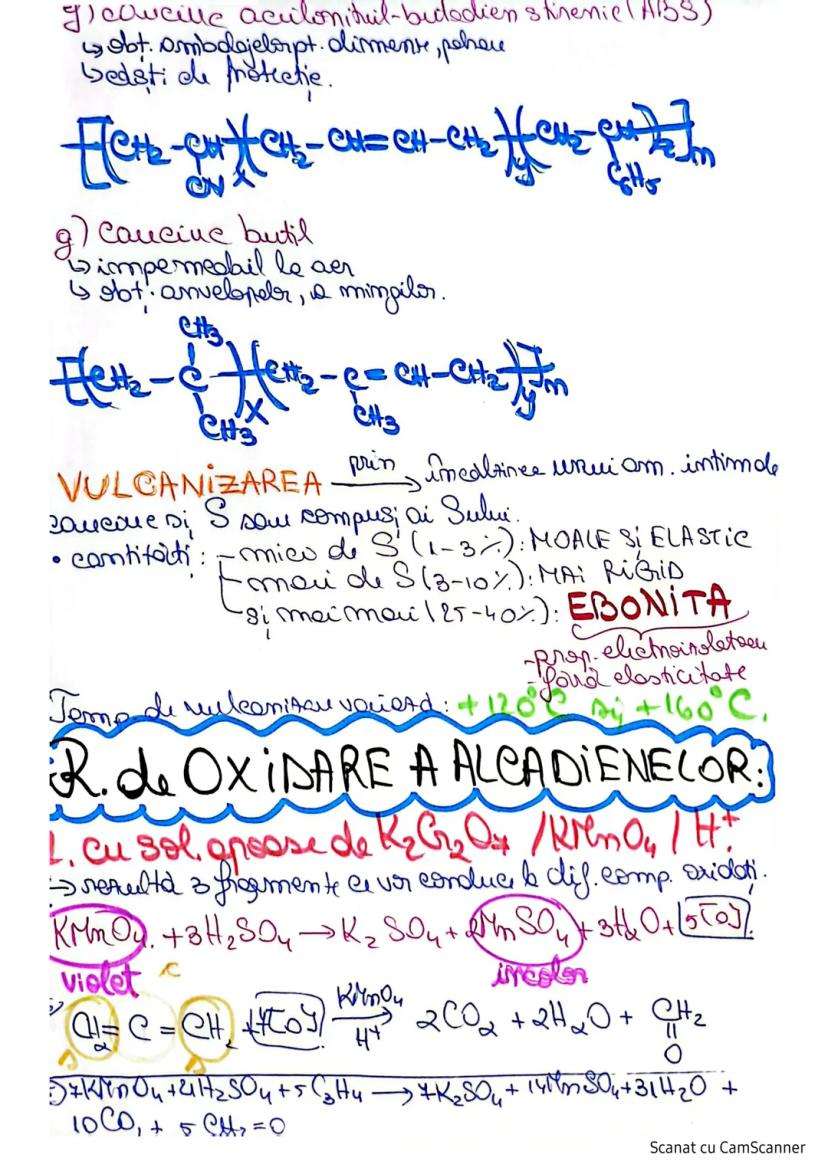 g) cauciuc acrilonitril-butadien stirenic (ABS)
↳ obț. ambalajelor pt. alimente, pahare
↳ căști de protecție.
-[(CH2-CH)x(CH2-CH=CH-CH2)y(CH2-CH)z]m
CN C6H5
g) cauciuc butil
↳ impermeabil la aer
↳ obț. anvelopelor, a mingilor.
CH3
-[(CH2-C)x(CH2-C=CH-CH2)y]m
CH3 CH3
VULCANiZAREA prin → încălzirea unui am. intim de
cauciuc și S sau compuși ai Sului.
• cantități: - mici de S (1-3%): MOALE Și ELASTiC
- mari de S (3-10%): MAi RiGiD
- și mai mari (25-40%): EBONiTA
- prop. electroizolatoare
- fără elasticitate
Temp. de vulcanizare variază: +120°C și +160°C.
R. de OXiDARE A ALCADiENELOR:
1. cu sol. apoase de K2Cr2O7 / KMnO4 / H+.
→ rezultă 3 fragmente ce vor conduce la dif. comp. oxidați.
KMnO4 + 3H2SO4 → K2SO4 + 2MnSO4 + 3H2O + 5[O]
violet incolor
CH2=C=CH2 + 4[O] KMnO4 / H+ → 2CO2 + 2H2O + CH2=O
7KMnO4 + 21H2SO4 + 5C3H4 → 7K2SO4 + 14MnSO4 + 31H2O +
10CO2 + 5CH2=O
Scanat cu CamScanner